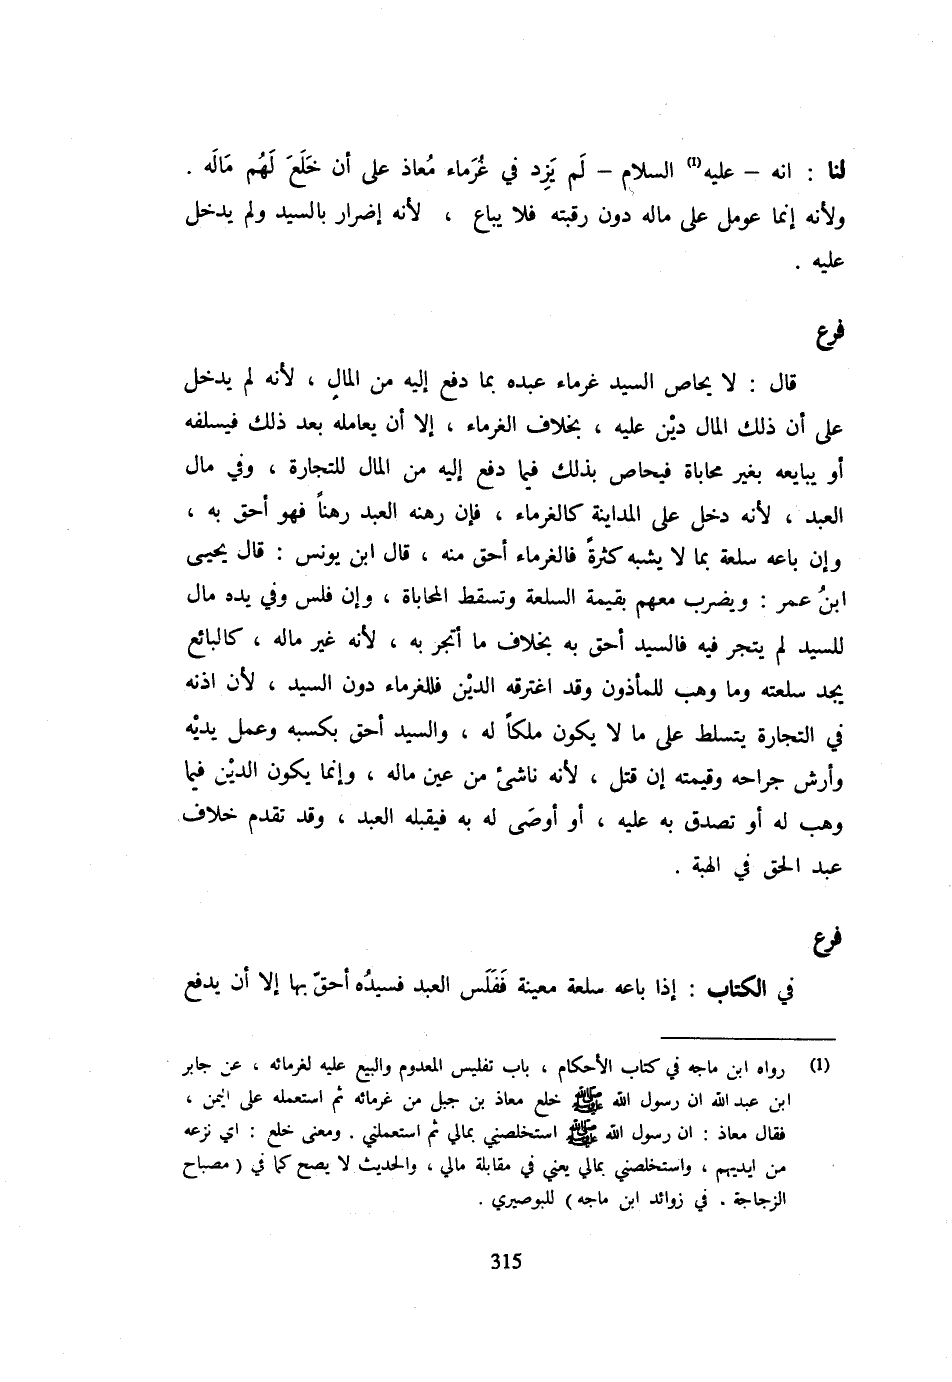 لنا : انه – عليه(1) السلام – لَم يَزِد في غُرَماء مُعاذ على أن خَلَعَ لَهُم مَالَه .
ولأنه إنما عومل على ماله دون رقبته فلا يباع ، لأنه إضرار بالسيد ولم يدخل
عليه .
فرع
قال : لا يحاص السيد غرماء عبده بما دفع إليه من المال ، لأنه لم يدخل
على أن ذلك المال ديْن عليه ، بخلاف الغرماء ، إلا أن يعامله بعد ذلك فيسلفه
أو يبايعه بغير محاباة فيحاص بذلك فيما دفع إليه من المال للتجارة ، وفي مال
العبد ، لأنه دخل على المداينة كالغرماء ، فإن رهنه العبد رهناً فهو أحق به ،
وإن باعه سلعة بما لا يشبه كثرةً فالغرماء أحق منه ، قال ابن يونس : قال يحيى
ابنُ عمر : ويضرب معهم بقيمة السلعة وتسقط المحاباة ، وإن فلس وفي يده مال
للسيد لم يتجر فيه فالسيد أحق به بخلاف ما أتجر به ، لأنه غير ماله ، كالبائع
يجد سلعته وما وهب للمأذون وقد اغترقه الديْن فللغرماء دون السيد ، لأن اذنه
في التجارة يتسلط على ما لا يكون ملكاً له ، والسيد أحق بكسبه وعمل يديْه
وأرش جراحه وقيمته إن قتل ، لأنه ناشئ من عين ماله ، وإنما يكون الديْن فيما
وهب له أو تصدق به عليه ، أو أوصَى له به فيقبله العبد ، وقد تقدم خلاف
عبد الحق في الهبة .
فرع
في الكتاب : إذا باعه سلعة معينة فَفَلَس العبد فسيدُه أحقّ بها إلا أن يدفع
(1) رواه ابن ماجه في كتاب الأحكام ، باب تفليس المعدوم والبيع عليه لغرمائه ، عن جابر
ابن عبد الله ان رسول الله ﷺ خلع معاذ بن جبل من غرمائه ثم استعمله على اليمن ،
فقال معاذ : ان رسول الله ﷺ استخلصني بمالي ثم استعملني . ومعنى خلع : اي نزعه
من ايديهم ، واستخلصني بمالي يعني في مقابلة مالي ، والحديث لا يصح كما في ( مصباح
الزجاجة . في زوائد ابن ماجه ) للبوصيري .
315